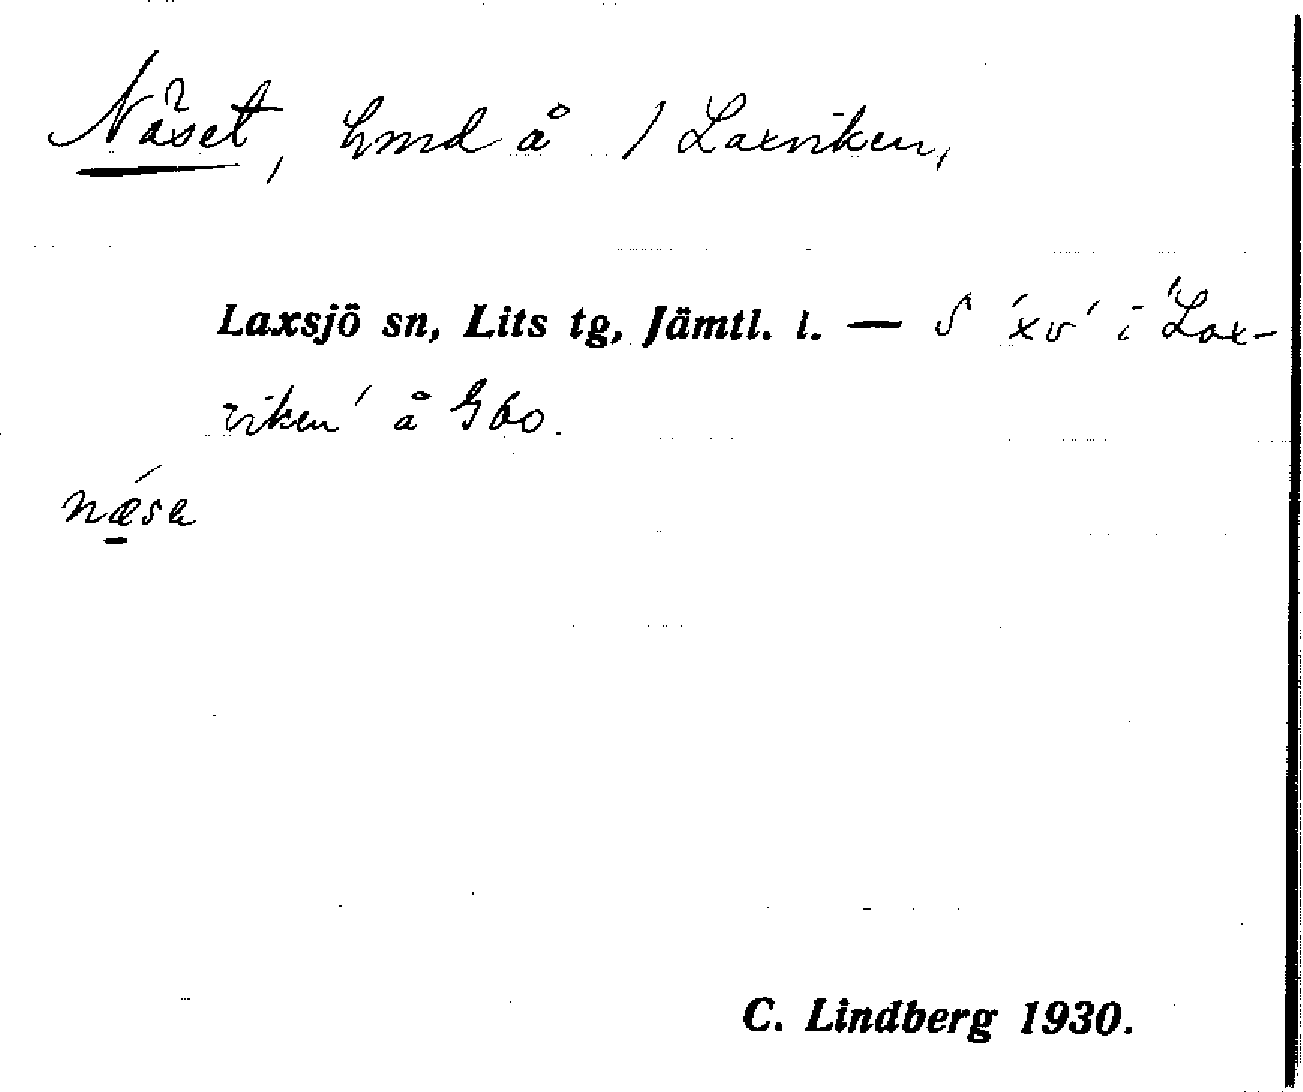 Näset, hmd å 1 Laxviken,
Laxsjö sn, Lits tg, Jämtl. l. — S 'xv' i 'Lax-
viken' å Gbo.
nǽ̲sa
C. Lindberg 1930.